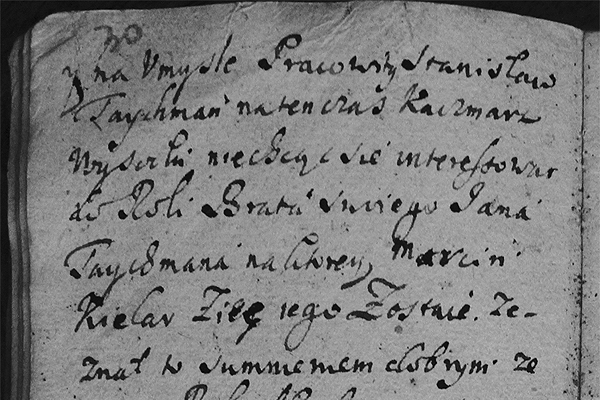 30
y na Umysle Pracowity Stanisław
Taychman natenczas Kaczmarz
niechcąc sie interessowac
do Roli Brata swego Jana
Taychmana na ktorey Marcin
Kielar Zięc iego Zostaie. Ze-
znał to summieniem dobrym ze